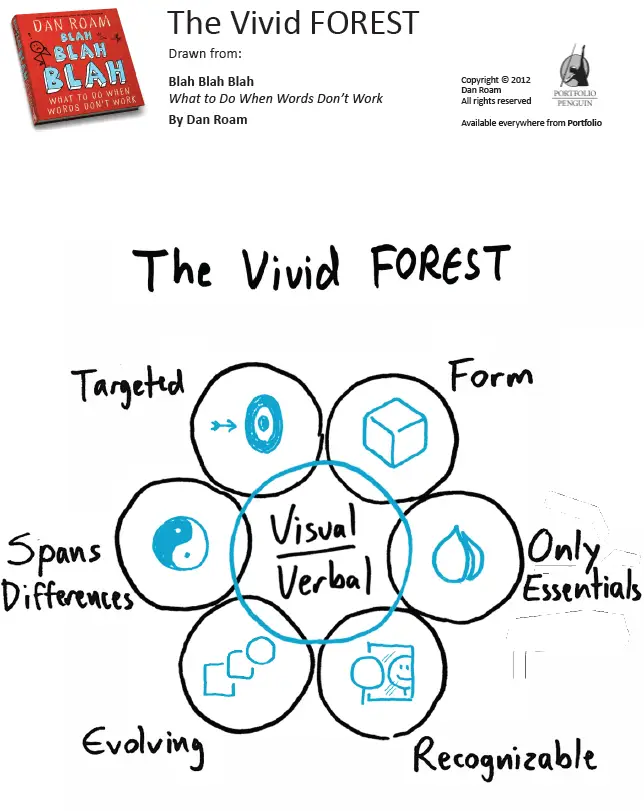 DAN ROAM
BLAH
BLAH
BLAH
WHAT TO DO WHEN
WORDS DON'T WORK
The Vivid FOREST
Drawn from:
Blah Blah Blah
What to Do When Words Don't Work
By Dan Roam
Copyright © 2012
Dan Roam
All rights reserved
PORTFOLIO
PENGUIN
Available everywhere from Portfolio
The Vivid FOREST
Targeted
Form
Visual
Verbal
Spans
Differences
Only
Essentials
Evolving
Recognizable